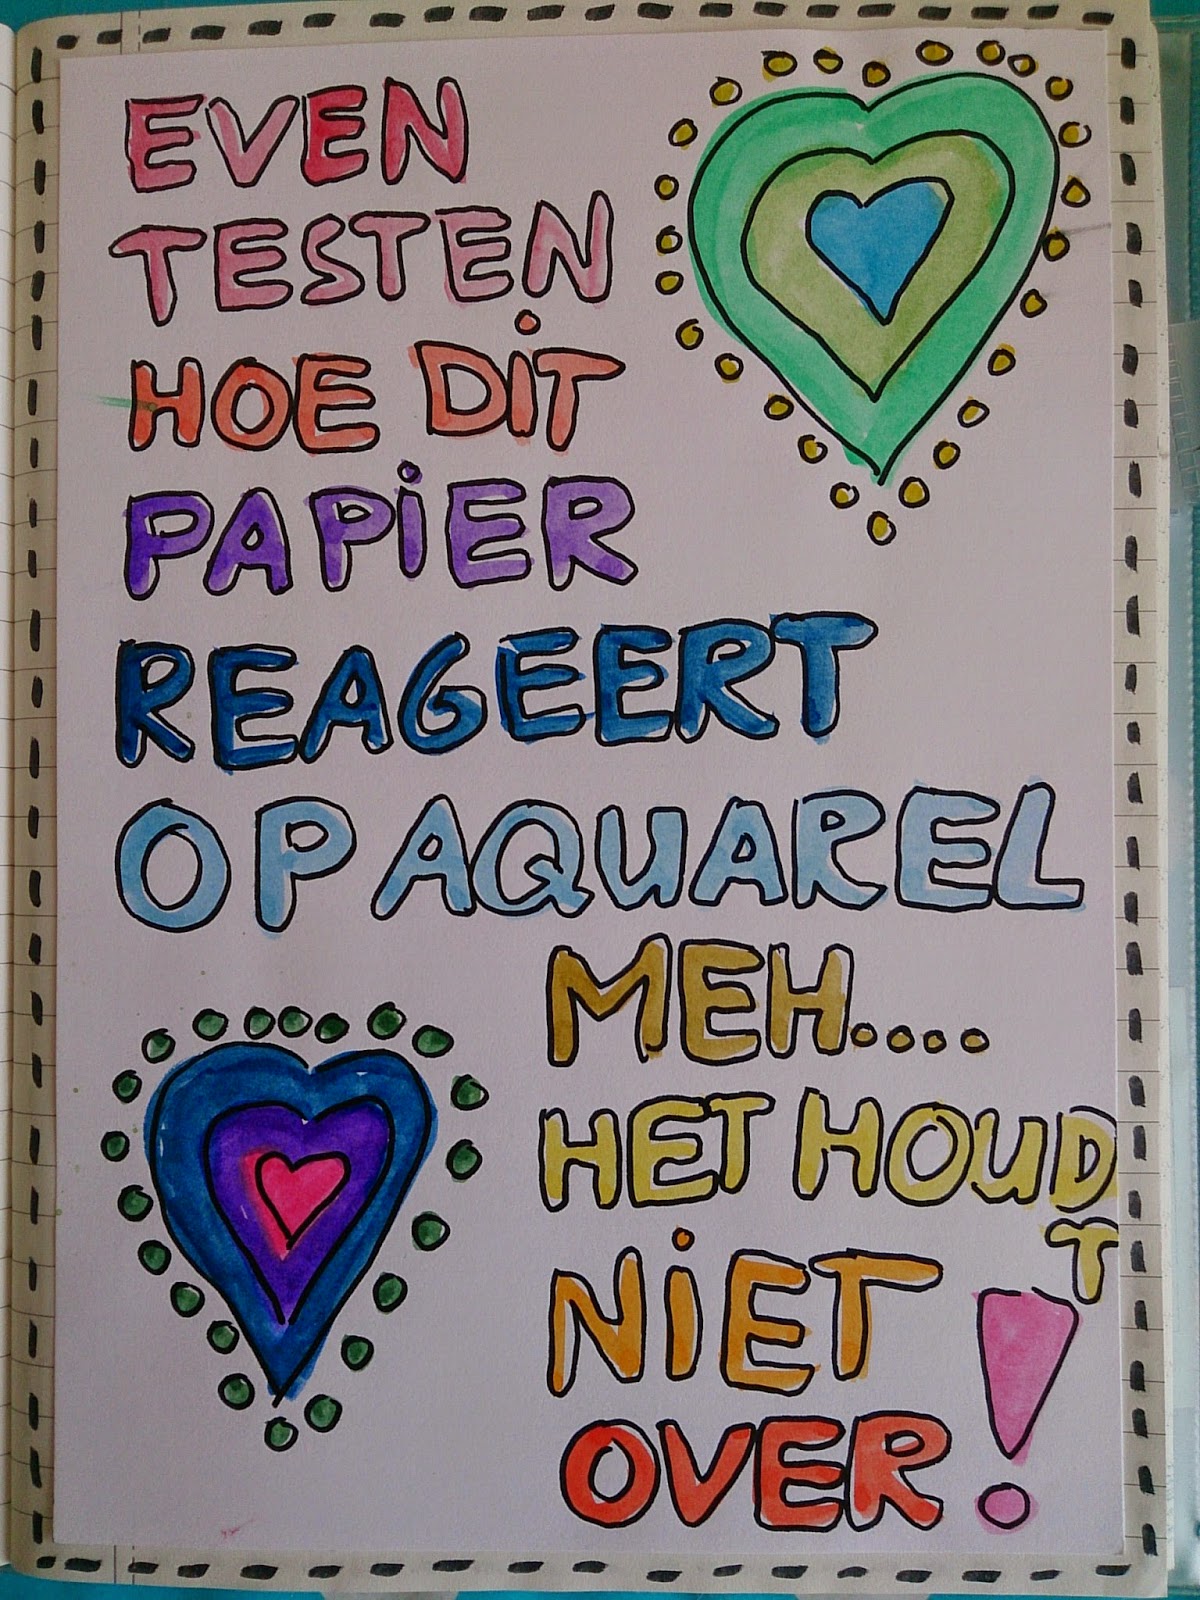 EVEN
TESTEN
HOE DIT
PAPIER
REAGEERT
OP AQUAREL
MEH....
HET HOUD
T
NIET
OVER!